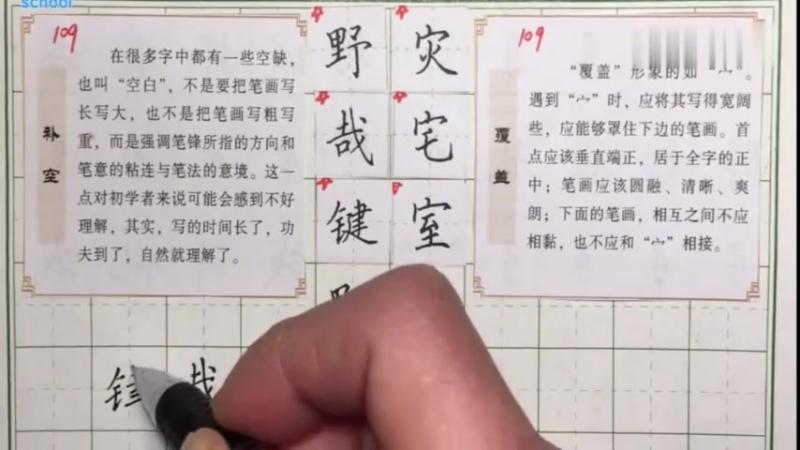 school
109
补空
在很多字中都有一些空缺,
也叫“空白”，不是要把笔画写
长写大，也不是把笔画写粗写
重，而是强调笔锋所指的方向和
笔意的粘连与笔法的意境。这一
点对初学者来说可能会感到不好
理解，其实，写的时间长了，功
夫到了，自然就理解了。
野 灾
哉 宅
键 室
109
覆盖
“覆盖”形象的如“宀”。
遇到“宀”时，应将其写得宽阔
些，应能够罩住下边的笔画。首
点应该垂直端正，居于全字的正
中；笔画应该圆融、清晰、爽
朗；下面的笔画，相互之间不应
相黏，也不应和“宀”相接。
哉